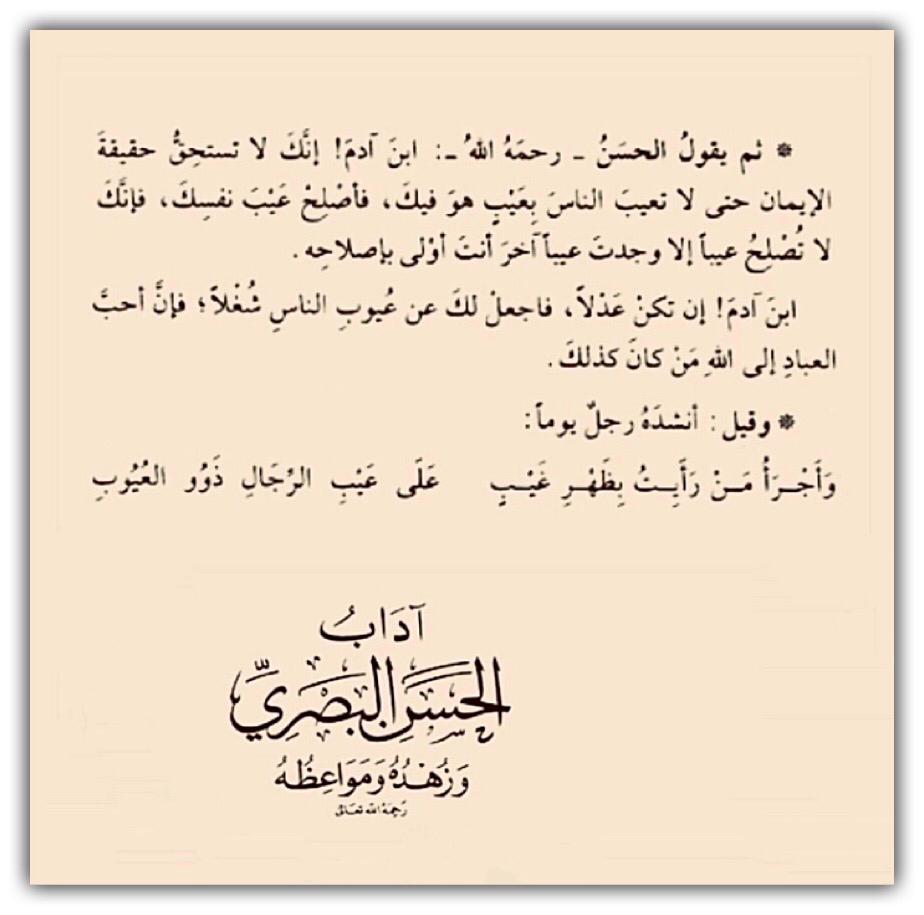 * ثم يقولُ الحسَنُ ـ رحمَهُ اللهُ ـ: ابنَ آدمَ! إنَّكَ لا تستحِقُّ حقيقةَ
الإيمان حتى لا تعيبَ الناسَ بِعَيْبٍ هوَ فيكَ، فأصْلِحْ عَيْبَ نفسِكَ، فإنَّكَ
لا تُصْلِحُ عيباً إلا وجدتَ عيباً آخرَ أنتَ أوْلى بإصلاحِه.
ابنَ آدمَ! إن تكنْ عَدْلاً، فاجعلْ لكَ عن عُيوبِ الناسِ شُغْلاً؛ فإنَّ أحبَّ
العبادِ إلى اللهِ مَنْ كانَ كذلكَ.
* وقيل: أنشدَهُ رجلٌ يوماً:
وَأَجْـرَأُ مَـنْ رَأَيـتُ بِظَهْـرِ غَيْـبٍ عَلَى عَيْبِ الرِّجَالِ ذَوُو العُيُوبِ
آدَابُ
الحَسَنِ البَصْرِيِّ
وَزُهْدُهُ وَمَوَاعِظُهُ
رَحِمَهُ الله تعَالى